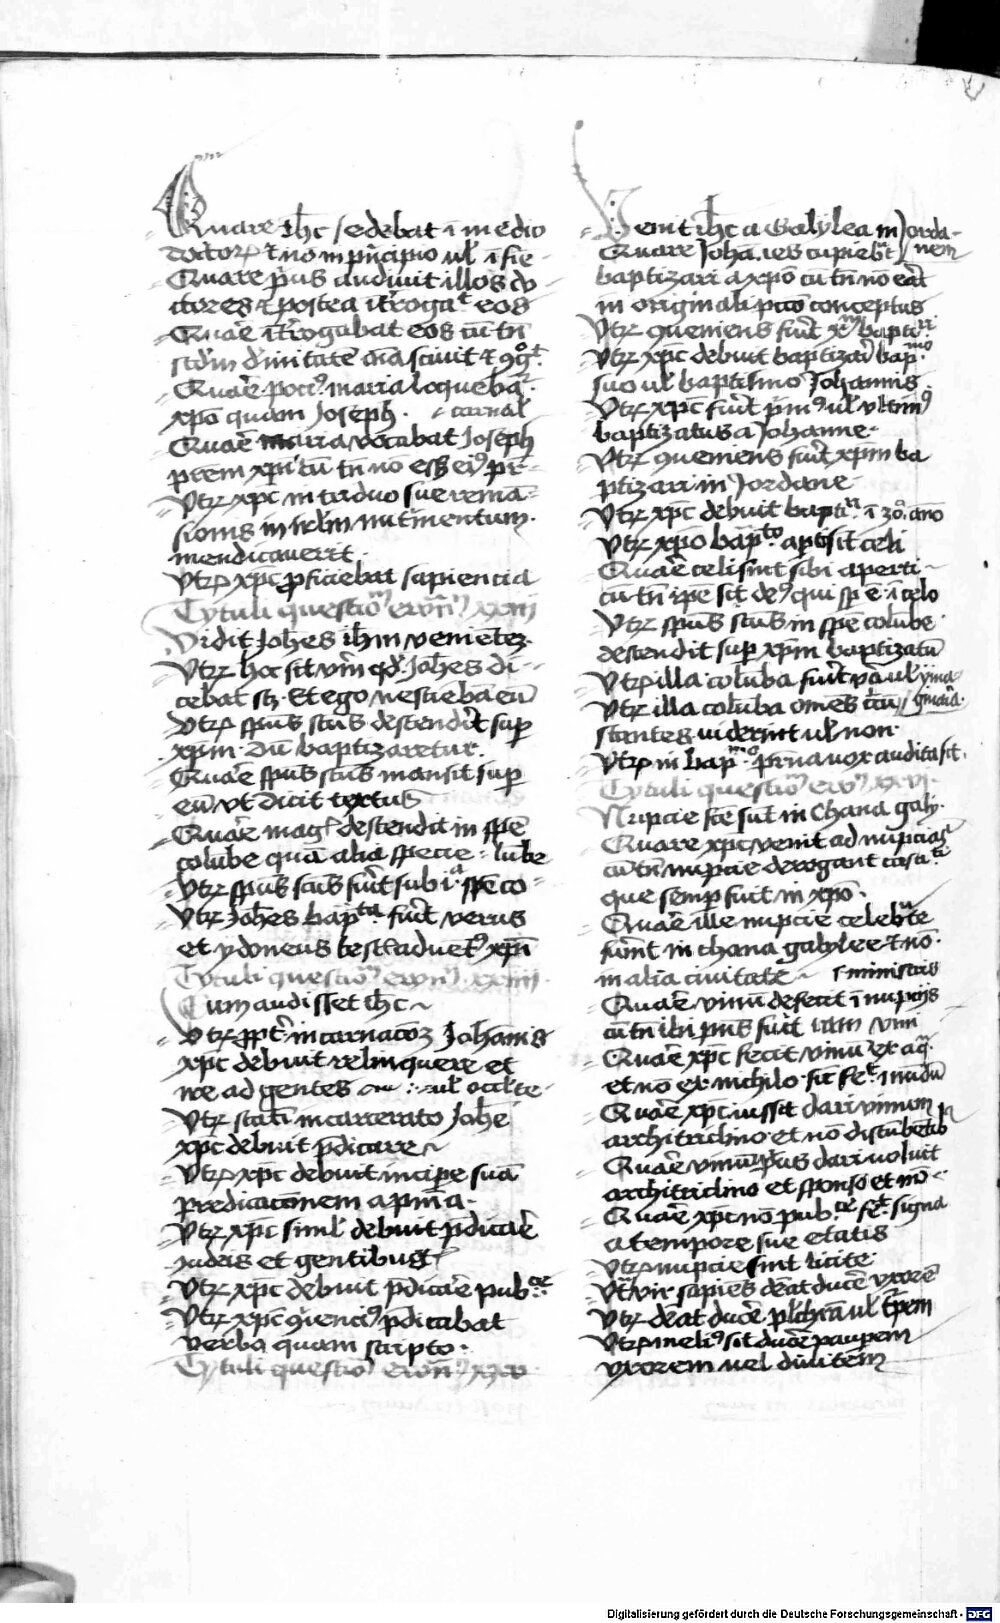 Quare ihc sedebat ī medio
doctor̄ et nō in p̄ncipio ul ī fine
Quare p̄us audiuit illos do
ctores et postea īt̄rogat eos
Quār̄ īt̄rogabat eos cū tn̄
scd̄m diuinitatē oīa sciuit et
Quār̄ poci9 maria loquebat̄
xp̄o quam Joseph · carnal
Quār̄ maria vocabat Joseph
pr̄em xp̄i cū tn̄ nō eēt ei9 pr̄
Vtr̄ xp̄c in triduo sue remā
sionis in irl̄m nut̄mentum
mendicauerit
Vtr̄ xp̄c ꝓficiebat sapiencia
Tytuli questio ewn̄ xxiii
Vidit Joh̄es ih̄m venientē
Vtr̄ hoc sit vr̄m qd̄ Joh̄es di
cebat sz̄ Et ego nesciebā eū
Vtr̄ sp̄us sc̄us descendit sup̄
xp̄m dū baptizaretur
Quār̄ sp̄us sc̄us mansit sup̄
eū vt dicit textus
Quār̄ mag9 descendit in sp̄e
colūbe quā alia specie
Vtr̄ sp̄us sc̄us fuit sub sp̄e co lūbe
Vtr̄ Joh̄es bapta fuit verus
et ydoneus test adūet9 xp̄i
Tytuli questio ewn̄ xxiiii
Cum audisset ih̄c
Vtr̄ ꝓpt̄ incarnacōz Johānis
xp̄c debuit relinquere et
ire ad gentes ul occl̄te
Vtr̄ stati incarcerato Joh̄e
xp̄c debuit p̄dicare
Vtr̄ xp̄c debuit incip̄e suā
predicacōnem a pnīa
Vtr̄ xp̄c simil debuit p̄dicār̄
Judeis et gentibus
Vtr̄ xp̄c debuit p̄dicār̄ pubce
Vtr̄ xp̄c 9uenci9 p̄dicabat
verbo quam scripto
Tytuli questio ewn̄ xxv
Venit ih̄c a Galylea in Jorda
nem
Quare Joha. ies cupiebāt
baptizari a xp̄o cū tn̄ nō eāt
in originali pccō conceptus
Vtr̄ 9ueniens fuit xm baptiri
Vtr̄ xp̄c debuit baptizār̄ bapmo
suo ul baptismo Johannis
Vtr̄ xp̄c fuit p̄m9 ul vltim9
baptizatus a Johanne
Vtr̄ 9ueniens fuit xp̄m ba
ptizari in Jordane
Vtr̄ xp̄c debuit bapti ī 30 āno
Vtr̄ xp̄o bapto apti sit celi
Quār̄ celi sint sibi aperti
cū tn̄ ip̄e sit de9 qui sp̄ ē ī celo
Vtr̄ sp̄us sc̄us in sp̄e colūbe
descendit sup̄ xp̄m baptizatū
Vtr̄ illa colūba fuit va ul yma
ginaria
Vtr̄ illa colūba omēs circū
stantes viderint ul non
Vtr̄ in bapmo pr̄na vox audita sit
Tytuli questio ewn̄ xxvi
Nupcie fc̄e sūt in Chana galy
Quare xp̄c venit ad nupcias
cū tn̄ nupcie derogant castati
que semp̄ fuit in xp̄o
Quār̄ ille nupcie celebate
fuint in chana galylee et nō
in alia ciuitate
Quār̄ vinū defecit ī nupcijs ministris
cū tn̄ ibi p̄ns fuit
Quār̄ xp̄c fecit vinū ex aq̄
et nō ex nichilo sic fet mūdū
Quār̄ xp̄c iussit dari vinum
architriclino et nō discūbētib
Quār̄ vinū p̄us dari voluit
architriclino et sponso et nō
Quār̄ xp̄c nō pubce fet signa
a tempore sue etatis
Vtr̄ nupcie sint licite
Vtr̄ vir sapiēs dēat ducē vxorē
Vtr̄ dēat ducē pulchrā ul t̄pem
Vtr̄ meli9 sit ducē paupem
vxorem uel diuitem
Digitalisierung gefördert durch die Deutsche Forschungsgemeinschaft - DFG